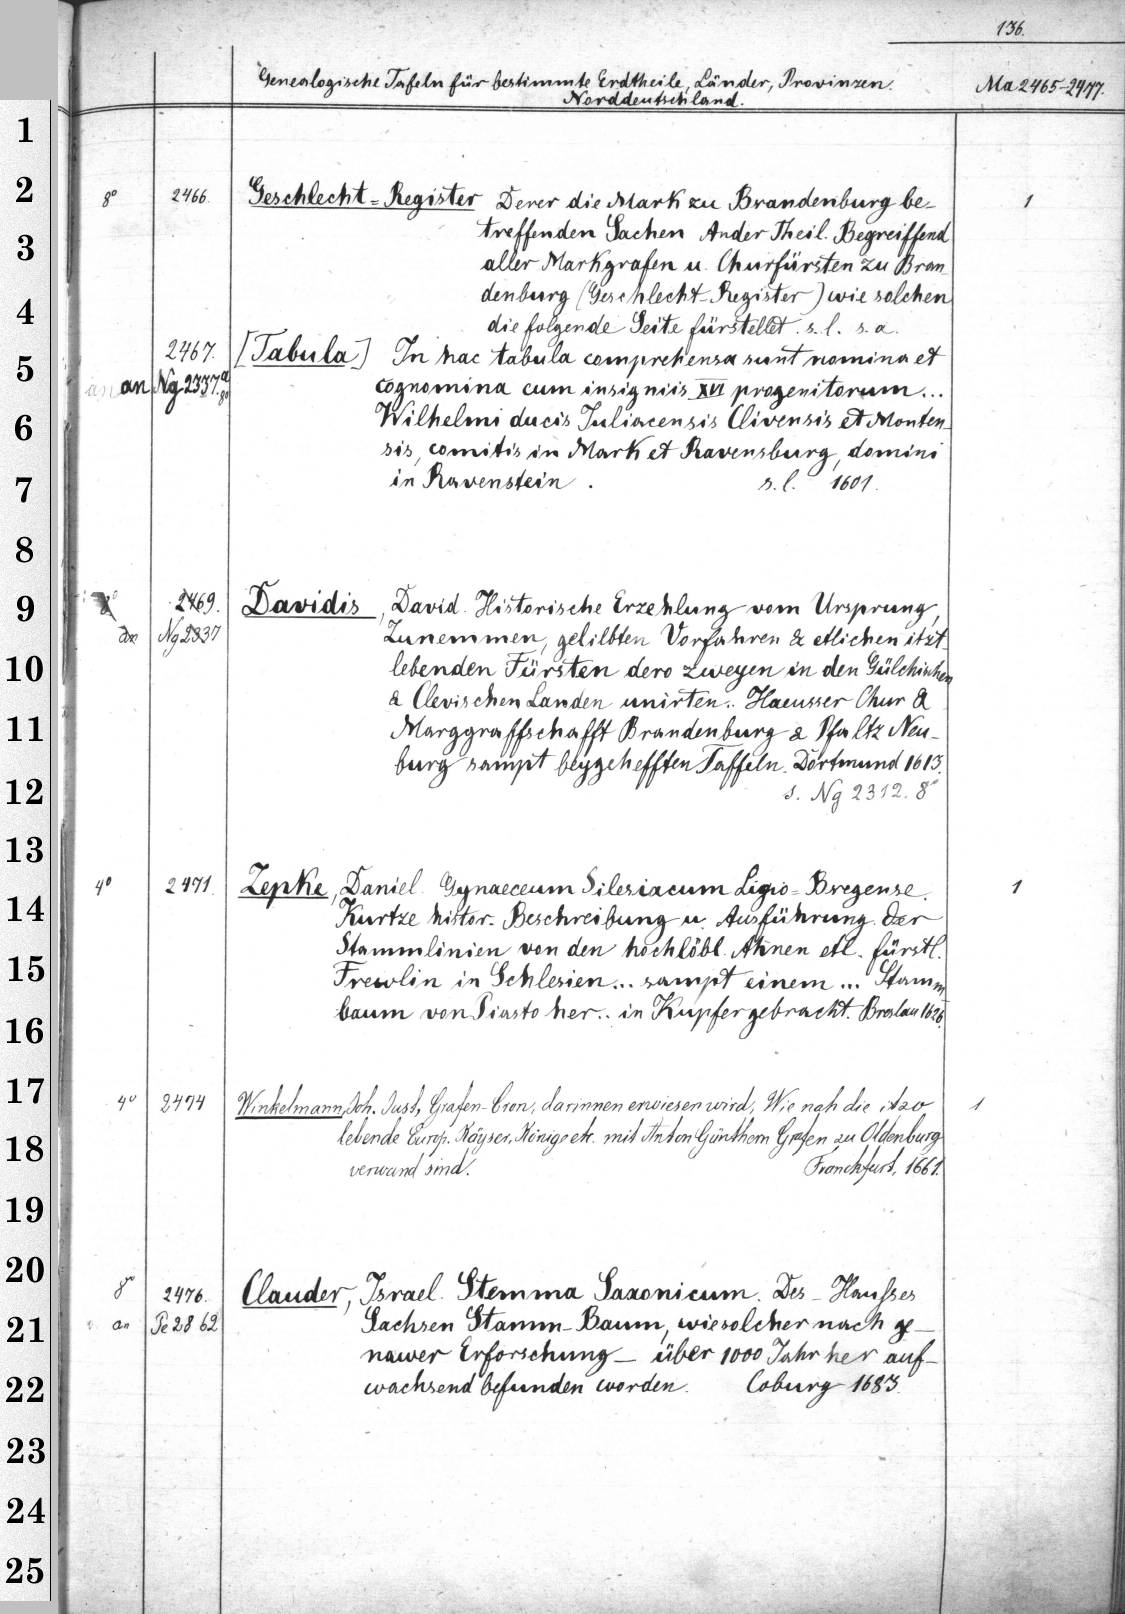 136.
Genealogische Tafeln für bestimmte Erdtheile, Länder, Provinzen. Ma 2465-2477.
Norddeutschland.
1
2
3
4
5
6
7
8
9
10
11
12
13
14
15
16
17
18
19
20
21
22
23
24
25
8° 2466. Geschlecht=Register Derer die Mark zu Brandenburg be- 1
treffenden Sachen Ander Theil. Begreiffend
aller Markgrafen u. Churfürsten zu Bran-
denburg (Geschlecht-Register) wie solchen
die folgende Seite fürstellet. s.l. s.a.
2467. [Tabula] In hac tabula comprehensa sunt nomina et
an Ng 2337.a 8° cognomina cum insigniis XVI progenitorum...
Wilhelmi ducis Juliacensis Clivensis et Monten-
sis, comitis in Mark et Ravensburg, domini
in Ravenstein . s.l. 1601.
8° 2469. Davidis, David. Historische Erzehlung vom Ursprung,
an Ng 2337 Zunemmen, gelilbten Vorfahren & etlichen itzt-
lebenden Fürsten dero zweyen in den Gülchischen
& Clevischen Landen unirten.. Haeusser Chur &
Marggraffschafft Brandenburg & Pfaltz Neu-
burg sampt beygehefften Taffeln. Dortmund 1613.
s. Ng 2312. 8°
4° 2471. Zepke, Daniel. Gynaeceum Silesiacum Ligio=Bregense. 1
Kurtze histor. Beschreibung u. Ausführung der
Stammlinien von den hochlöbl. Ahnen etl. fürstl.
Frewlin in Schlesien... sampt einem... Stamm
baum von Piasto her.. in Kupfer gebracht. Breslau 1626.
4° 2474 Winkelmann, Joh. Just, Grafen-Cron, darinnen erwiesen wird, Wie nah die itzo 1
lebende Europ. Käyser, Könige etc. mit Anton Günthern Grafen zu Oldenburg
verwand sind. Franckfurt, 1661.
8° 2476. Clauder, Israel. Stemma Saxonicum. Des - Hausses
an Pe 2862 Sachsen Stamm-Baum, wie solcher nach ge-
nawer Erforschung - über 1000 Jahr her auf-
wachsend befunden worden. Coburg 1683.